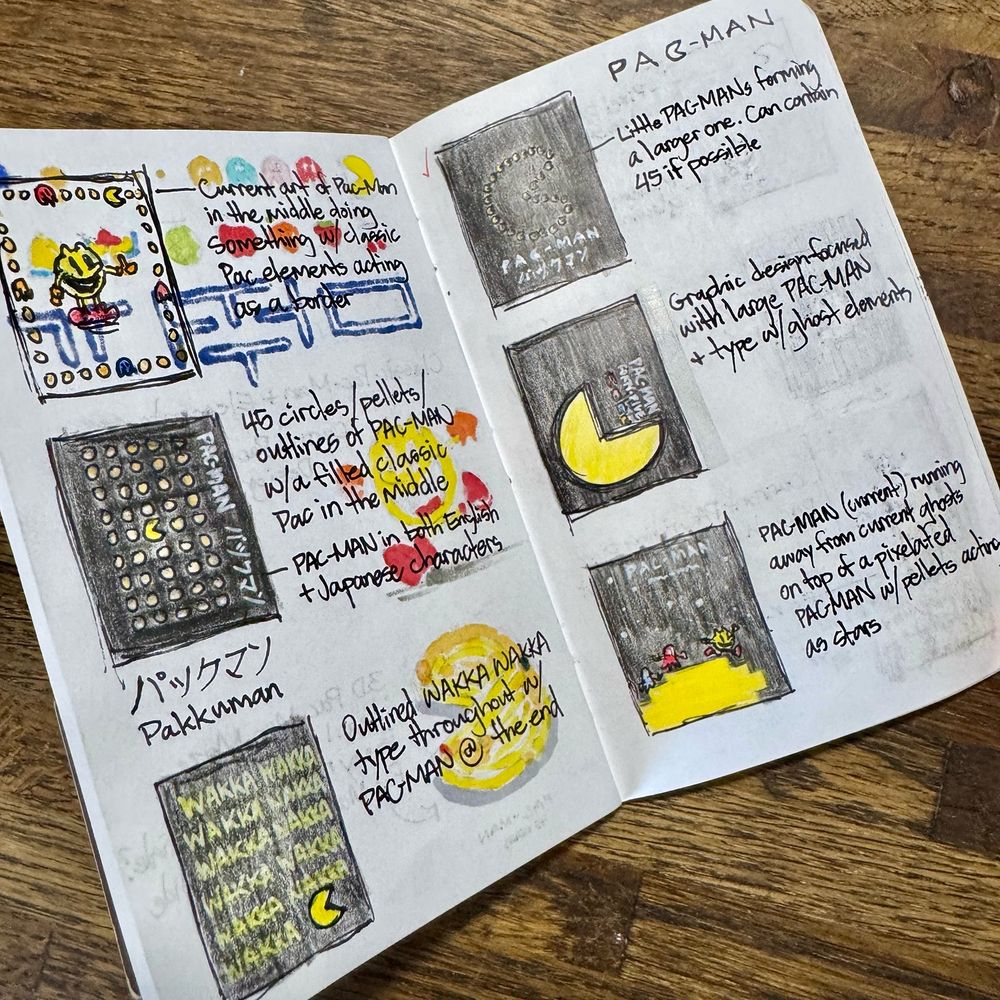 Current art of Pac-Man
in the middle doing
something w/ classic
Pac elements acting
as a border
45 circles/pellets/
outlines of PAC-MAN
w/a filled classic
Pac in the middle
PAC-MAN in both English
+ Japanese characters
PAC-MAN パックマン
パックマン
Pakkuman
Outlined WAKKA WAKKA
type throughout w/
PAC-MAN @ the end
WAKKA WAKKA
WAKKA WAKKA
WAKKA WAKKA
WAKKA
WAKKA
WAKKA
PAC-MAN
Little PAC-MANs forming
a larger one. Can contain
45 if possible
PAC-MAN
パックマン
Graphic design-focused
with large PAC-MAN
+ type w/ghost elements
PAC-MAN
PAC-MAN (current) running
away from current ghosts
on top of a pixelated
PAC-MAN w/ pellets acting
as stars
PAC-MAN